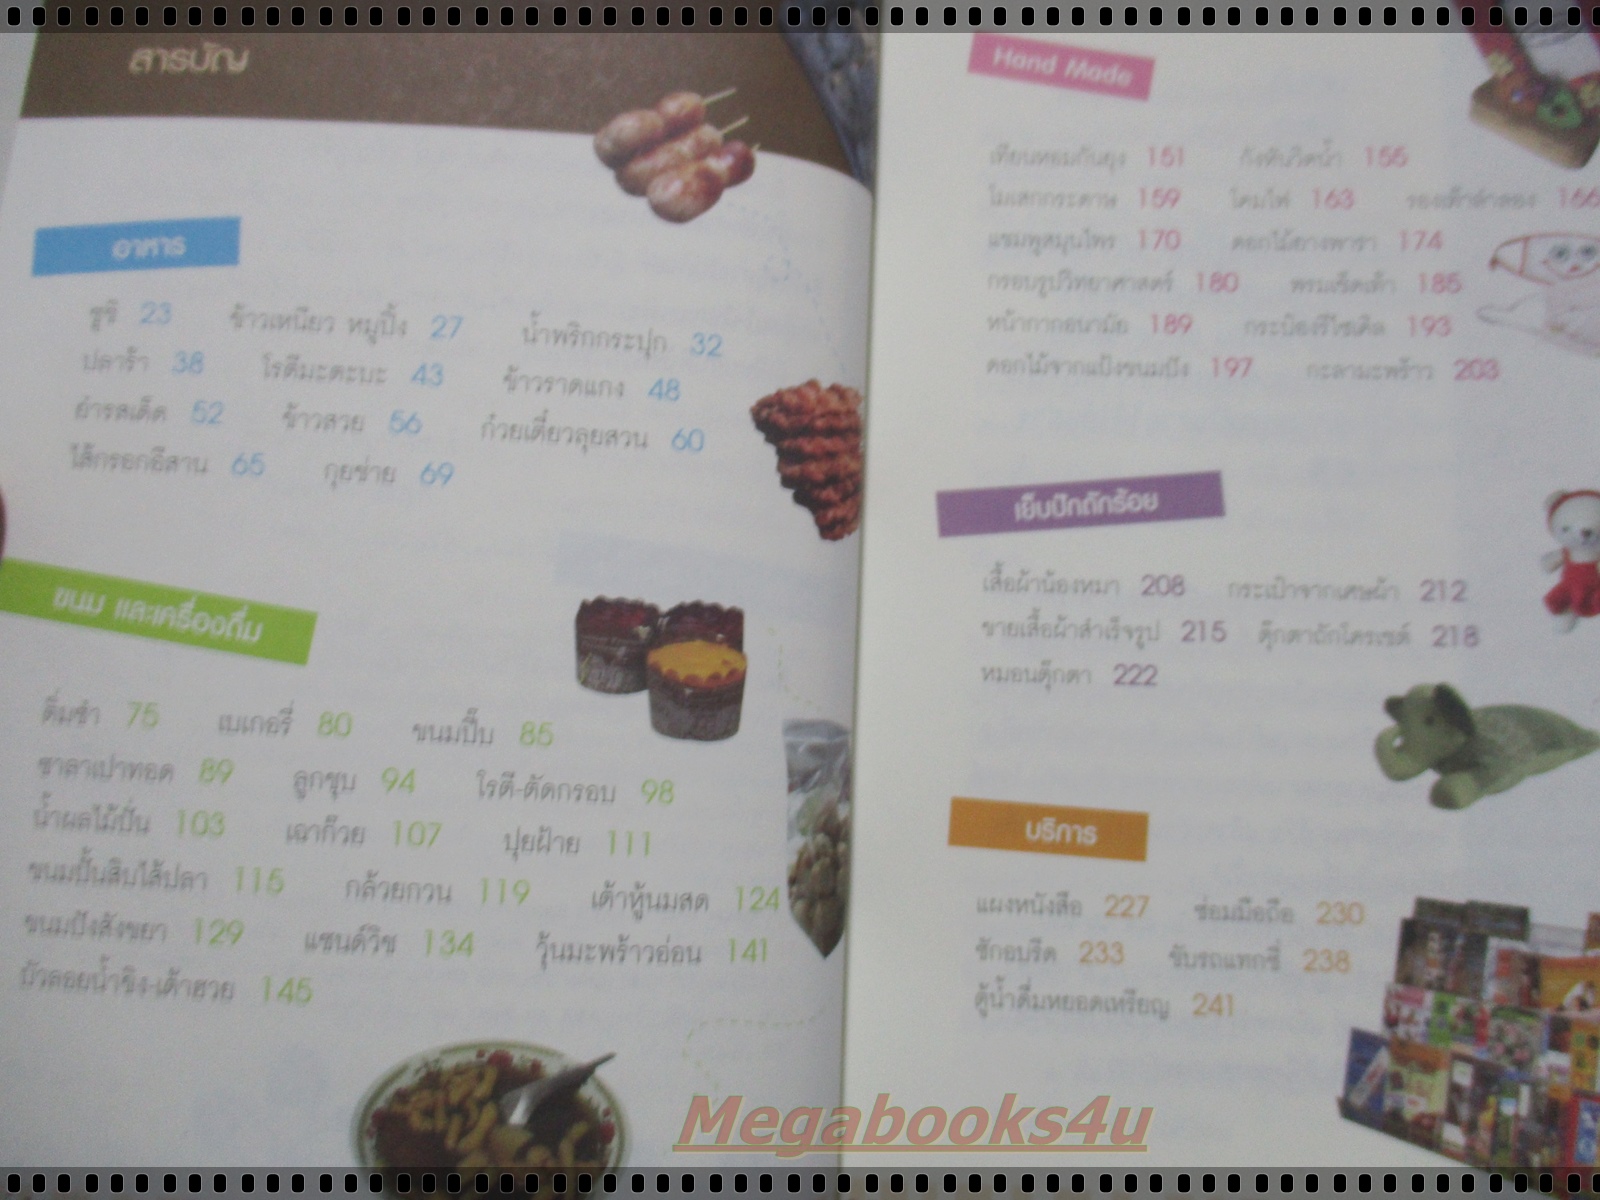 สารบัญ
อาหาร
ซูชิ 23 ข้าวเหนียว หมูปิ้ง 27 น้ำพริกกระปุก 32
ปลาร้า 38 โรตีมะตะบะ 43 ข้าวราดแกง 48
ยำรสเด็ด 52 ข้าวสวย 56 ก๋วยเตี๋ยวลุยสวน 60
ไส้กรอกอีสาน 65 กุยช่าย 69
ขนม และเครื่องดื่ม
ติ่มซำ 75 เบเกอรี่ 80 ขนมปี๊บ 85
ซาลาเปาทอด 89 ลูกชุบ 94 โรตี-ตัดกรอบ 98
น้ำผลไม้ปั่น 103 เฉาก๊วย 107 ปุยฝ้าย 111
ขนมปั้นสิบไส้ปลา 115 กล้วยกวน 119 เต้าหู้นมสด 124
ขนมปังสังขยา 129 แซนด์วิช 134 วุ้นมะพร้าวอ่อน 141
บัวลอยน้ำขิง-เต้าฮวย 145
Hand Made
เทียนหอมกันยุง 151 กังหันวิดน้ำ 155
โมเสกกระดาษ 159 โคมไฟ 163 รองเท้าลำลอง 166
แชมพูสมุนไพร 170 ดอกไม้ยางพารา 174
กรอบรูปวิทยาศาสตร์ 180 พรมเช็ดเท้า 185
หน้ากากอนามัย 189 กระป๋องรีไซเคิล 193
ดอกไม้จากแป้งขนมปัง 197 กะลามะพร้าว 203
เย็บปักถักร้อย
เสื้อผ้าน้องหมา 208 กระเป๋าจากเศษผ้า 212
ขายเสื้อผ้าสำเร็จรูป 215 ตุ๊กตาถักโครเชต์ 218
หมอนตุ๊กตา 222
บริการ
แผงหนังสือ 227 ซ่อมมือถือ 230
ซักอบรีด 233 ขับรถแทกซี่ 238
ตู้น้ำดื่มหยอดเหรียญ 241
Megabooks4u